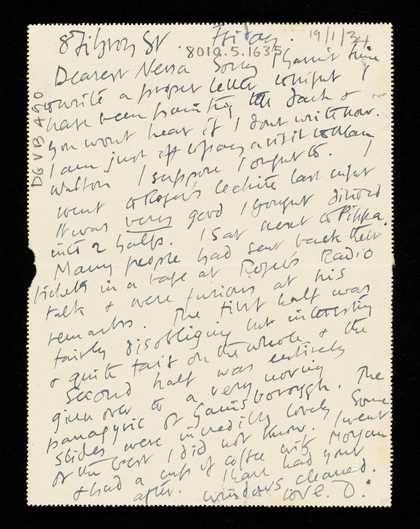 8 Fitzroy St Friday. 19/1/34
8010.5.1635
DGVB A90
Dearest Nessa Sorry I havnt time
to write a proper letter tonight I
have been painting till dark &
you wont hear if I dont write now.
I am just off to pay a visit to
Walton I suppose I ought to. I
went to Roger's lecture last night
it was very good I thought divided
into 2 halfs. I sat next to Pippa.
Many people had sent back their
tickets in a rage at Rogers Radio
talk & were furious at his
remarks. The first half was
fairly disobliging but interesting
& quite fair on the whole & the
second half was entirely
given over to a very moving
panagyric of Gainsborough. The
slides were incredibly lovely Some
of the best I did not know. I went
& had a cup of coffee with Morgan
after. I have had your
windows cleaned.
love. D.